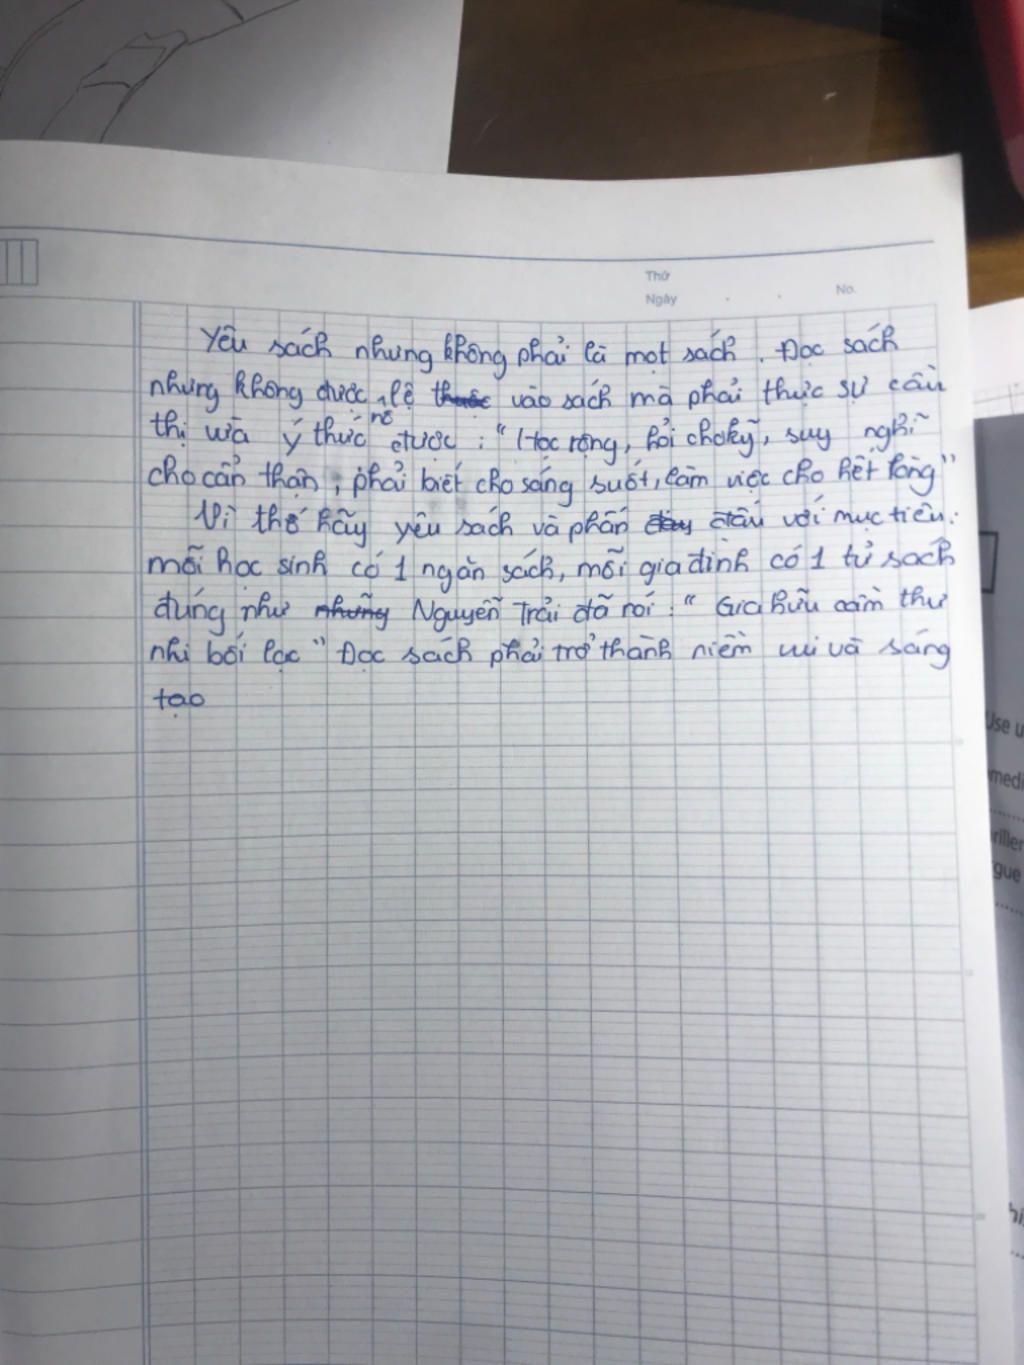 Thứ
Ngày . . No.
Yêu sách nhưng không phải là mọt sách. Đọc sách
nhưng không được nô lệ vào sách mà phải thực sự cầu
thị vừa ý thức được: "Học rộng, hỏi cho kỹ, suy nghĩ
cho cẩn thận, phải biết cho sáng suốt, làm việc cho hết lòng"
Vì thế hãy yêu sách và phấn đấu với mục tiêu:
mỗi học sinh có 1 ngăn sách, mỗi gia đình có 1 tủ sách
đúng như Nguyễn Trãi đã nói: "Gia hữu cầm thư
nhi bối lạc" Đọc sách phải trở thành niềm vui và sáng
tạo
Use u
medi
riller
gue
hi